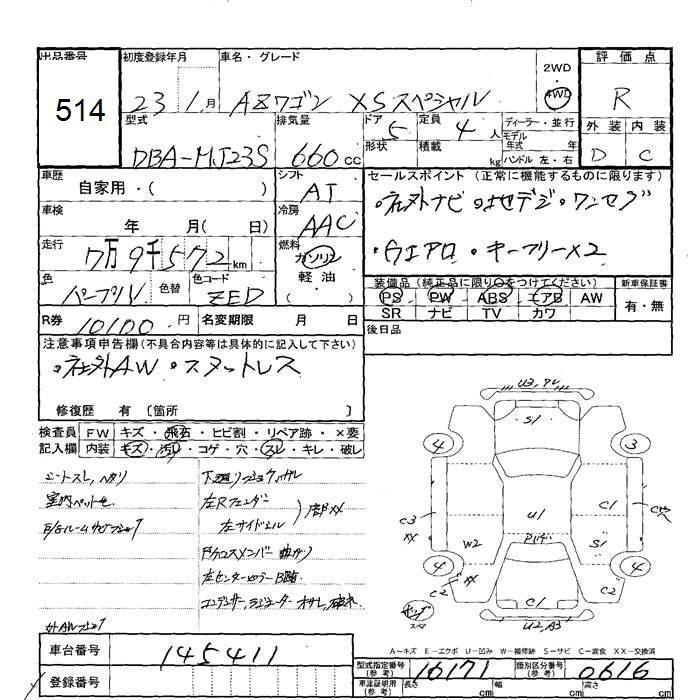 出品番号 初度登録年月 車名・グレード 2WD 4WD 評価点
514 23 1月 AZワゴン XSスペシャル R
型式 排気量 ドア 定員 ディーラー・並行 外装 内装
DBA-MJ23S 660cc 5 4人 モデル年式 年
形状 積載 kg ハンドル 左・右 D C
車歴 シフト セールスポイント (正常に機能するものに限ります)
自家用・( ) AT ・社外ナビ ・地デジ・ワンセグ
車検 冷房
年 月( 日) AAC ・ウエアロ ・キーフリー×2
走行 燃料
7万9千572km ガソリン
軽油
( )
色 色替 色コード 装備品 (純正品に限り○をつけてください) 新車保証書
パープルV ZED PS PW ABS エアB AW 有・無
SR ナビ TV カワ
R券 10100円 名変期限 月 日 後日品
注意事項申告欄(不具合内容等は具体的に記入して下さい)
・社外AW ・スタットレス
修復歴 有 〔箇所 〕
検査員 FW キズ・飛石・ヒビ割・リペア跡・×要
記入欄 内装 キズ・汚れ・コゲ・穴・スレ・キレ・破レ
シートスレ、ヘタリ
左Rフェンダー
左サイドシル
曲ガリ
コンデンサー、ラジエーター
U3
S1
4 3
C3 XX U1 C1
W2 S1
4 XX 4
C2 C2
C1
U2、A3
A−キズ E−エクボ U−凹み W−補修跡 S−サビ C−腐食 XX−交換済
車台番号 145411
型式指定番号(参考) 16171 類別区分番号(参考) 0616
登録番号 車庫証明用(参考) 長さ cm 幅 cm 高さ cm